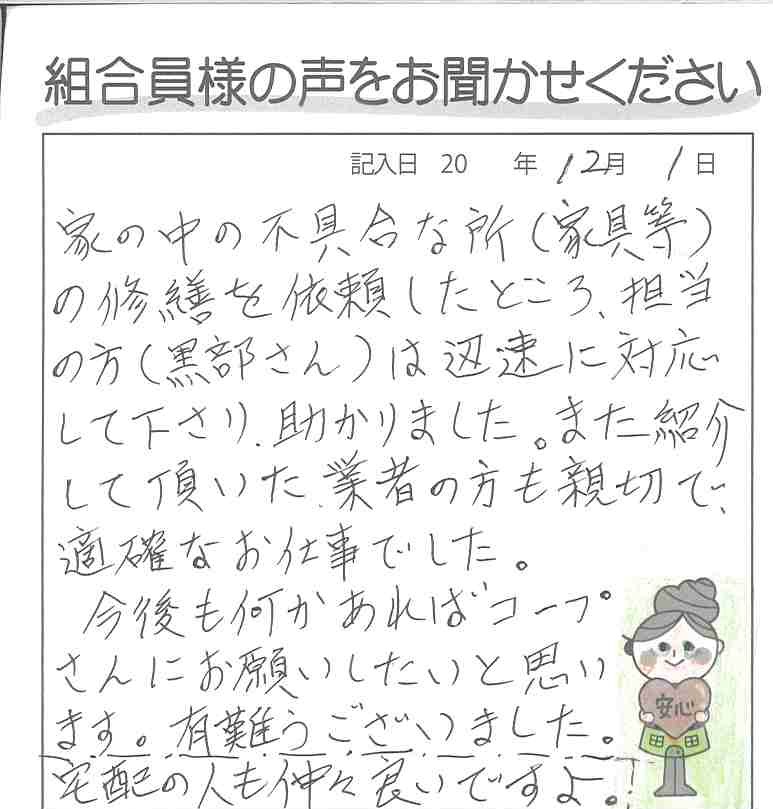 組合員様の声をお聞かせください
記入日 20 年 12月 1日
家の中の不具合な所(家具等)
の修繕を依頼したところ、担当
の方(黒部さん)は迅速に対応
して下さり、助かりました。また紹介
して頂いた業者の方も親切で、
適確なお仕事でした。
今後も何かあればコープ
さんにお願いしたいと思い
ます。有難うございました。
宅配の人も仲々良いですよ。!
安心